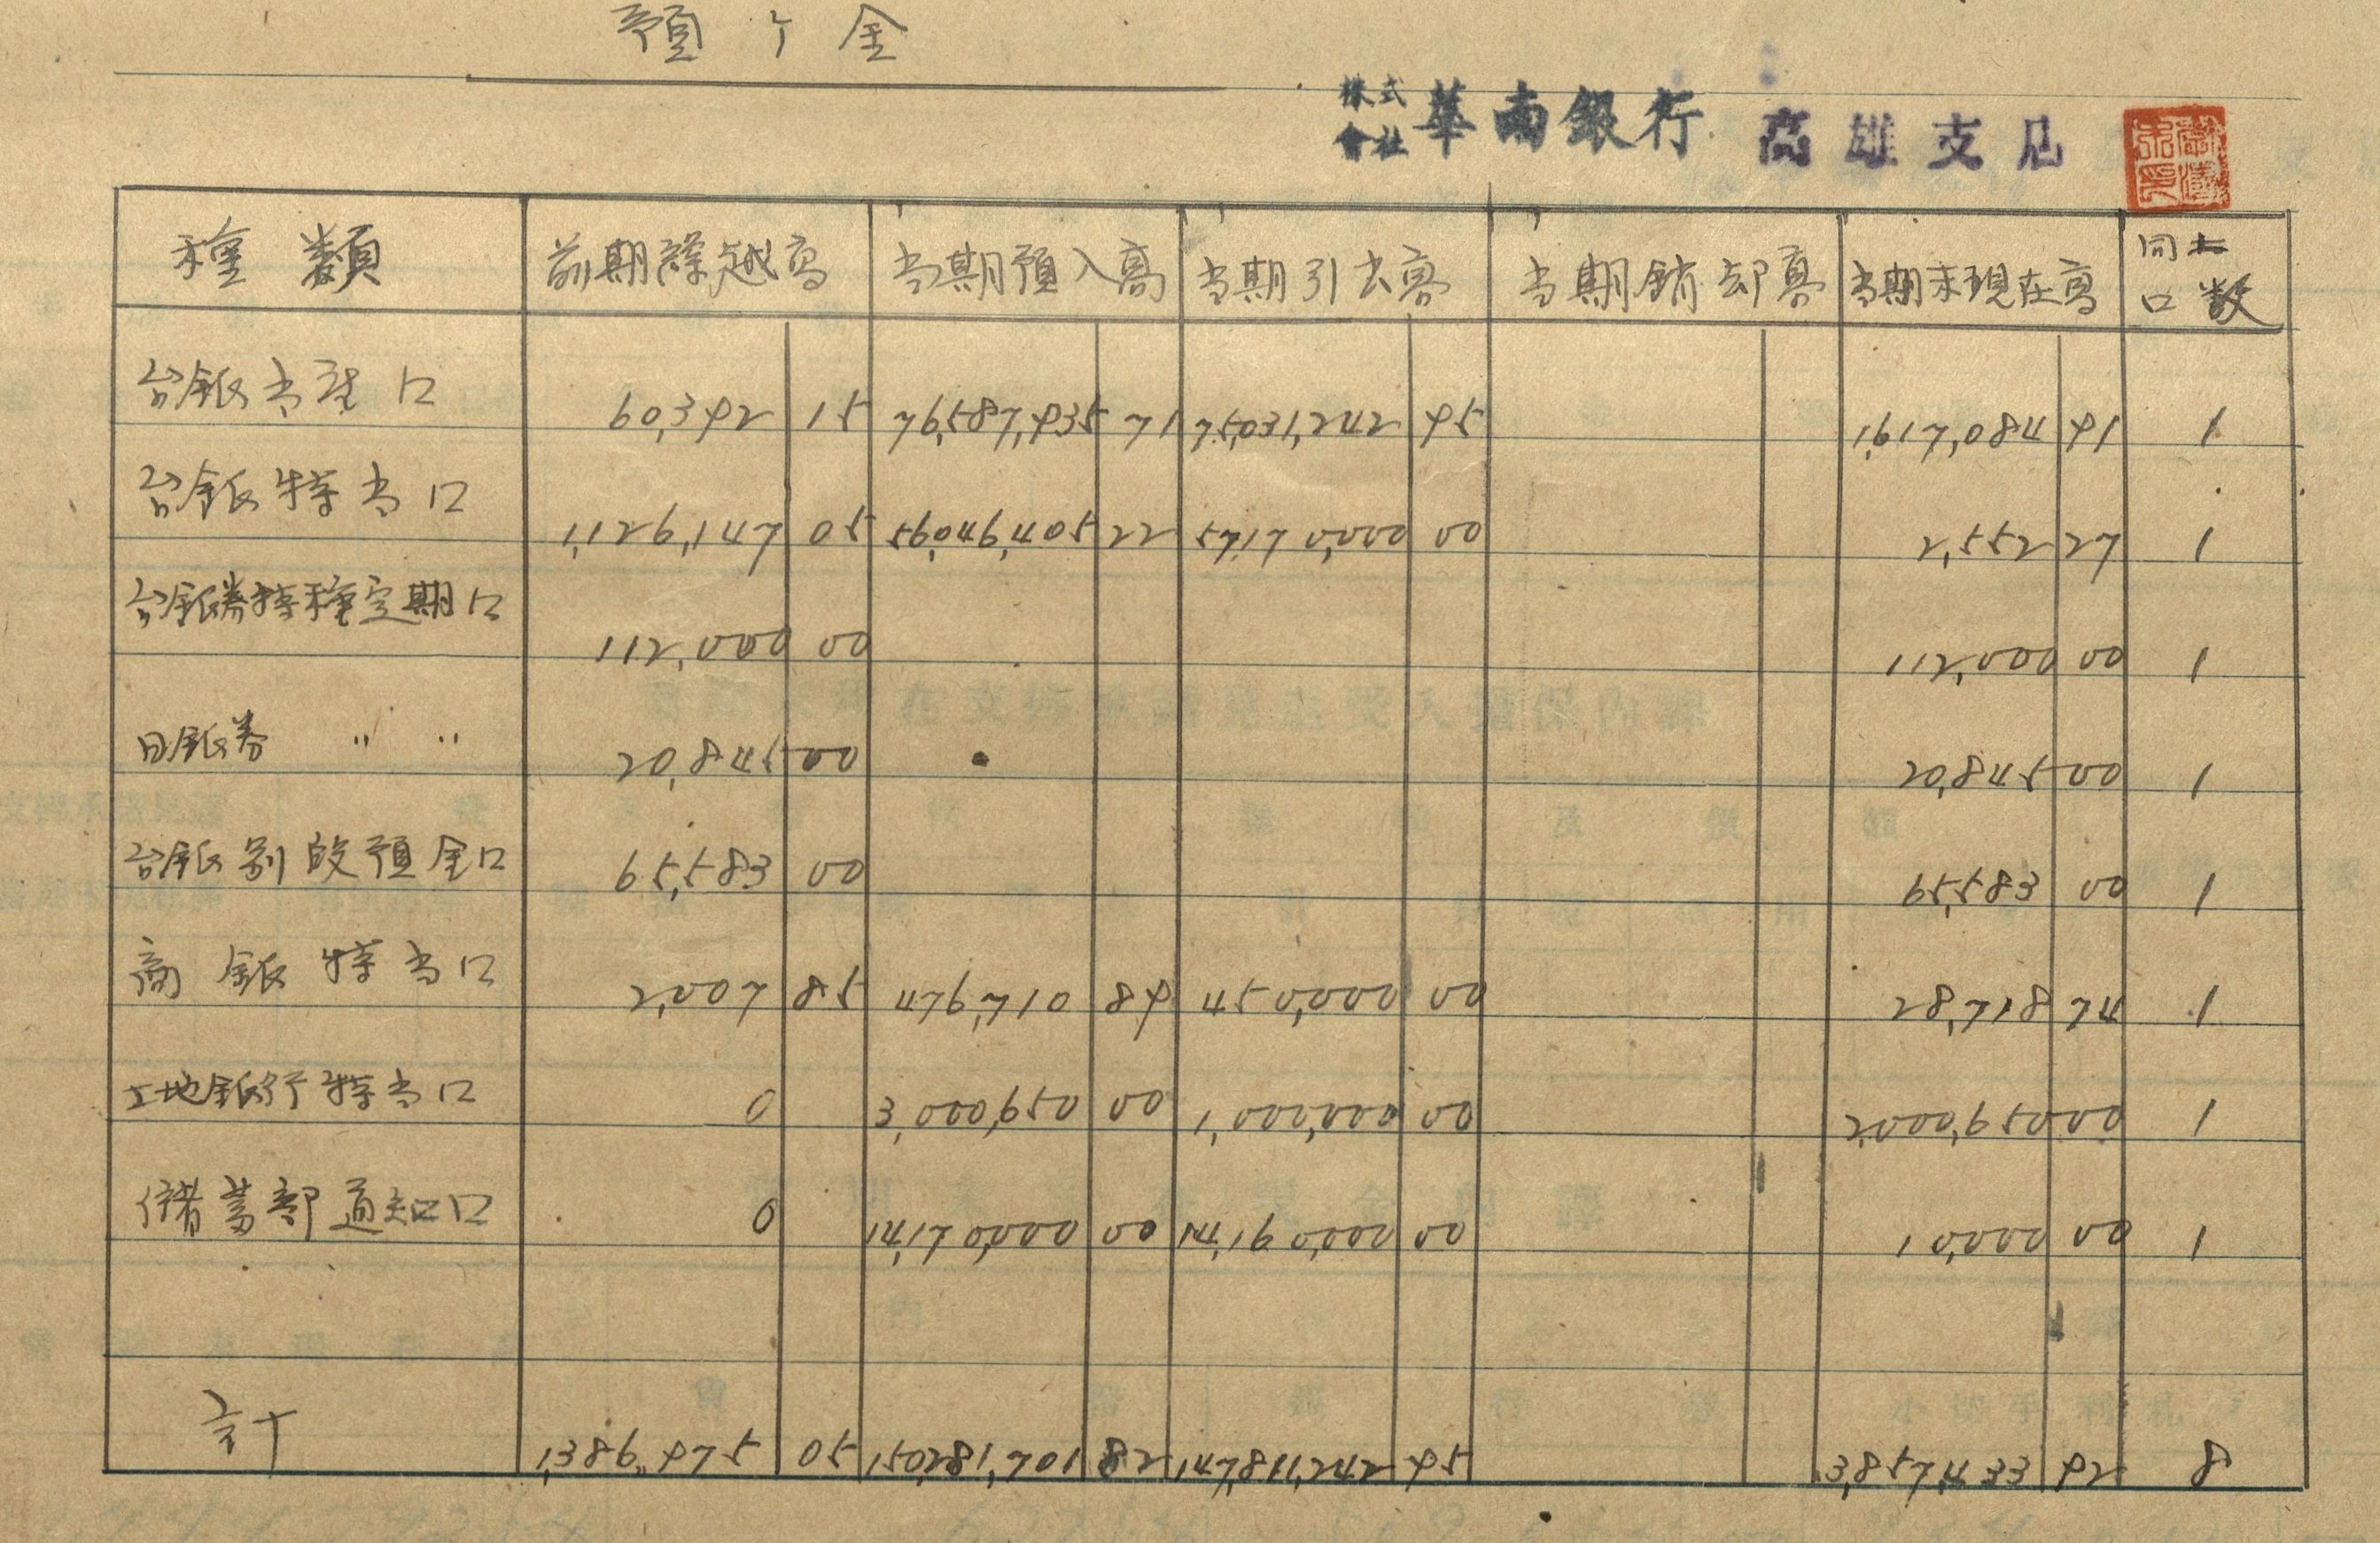 預ケ金
株式會社 華南銀行 高雄支店
種類 前期繰越高 当期預入高 当期引出高 当期銷却高 当期末現在高 同上口数
台銀当座口 60,392 15 76,587,935 71 75,031,242 95 1,617,084 91 1
台銀特当口 1,126,147 05 56,046,405 22 57,170,000 00 2,552 27 1
台銀券特種定期口 112,000 00 112,000 00 1
日銀券 〃 〃 20,845 00 20,845 00 1
台銀別段預金口 65,583 00 65,583 00 1
商銀特当口 2,007 85 476,710 89 450,000 00 28,718 74 1
土地銀行特当口 0 3,000,650 00 1,000,000 00 2,000,650 00 1
儲蓄部通知口 0 14,170,000 00 14,160,000 00 10,000 00 1
計 1,386,975 05 150,281,701 82 147,811,242 95 3,857,433 92 8